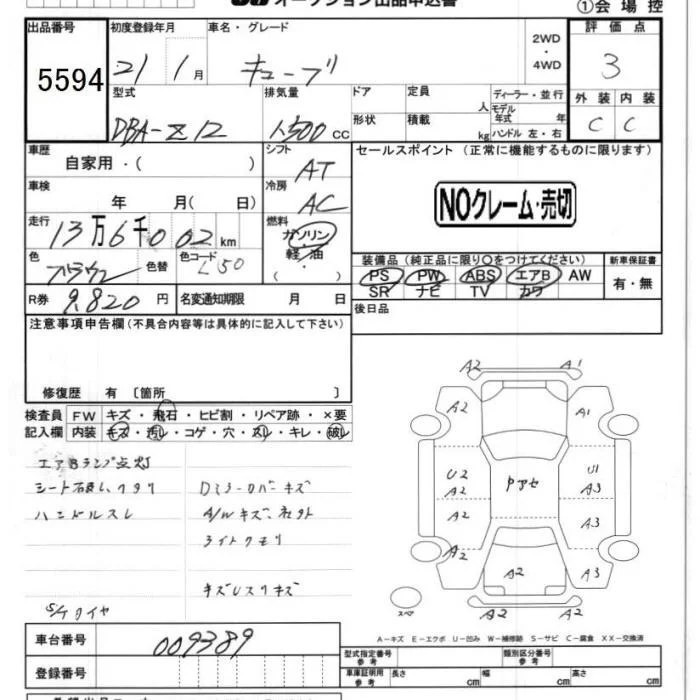 オークション出品申込書
①会場控
出品番号 初度登録年月 車名・グレード 2WD・4WD 評価点
5594 21 1月 キューブ 3
型式 排気量 ドア 定員 人 ディーラー・並行 外装 内装
モデル年式 年
DBA-Z12 1500 CC 形状 積載 kg ハンドル 左・右 C C
車歴 自家用・( ) シフト AT セールスポイント (正常に機能するものに限ります)
車検 年 月( 日) 冷房 AC NOクレーム・売切
走行 13万6千002km 燃料 ガソリン・軽油・( )
色 ブラウン 色替 色コード L50 装備品 (純正品に限り○をつけてください) 新車保証書
PS PW ABS エアB AW 有・無
SR ナビ TV カワ
R券 9,820円 名変通知期限 月 日 後日品
注意事項申告欄 (不具合内容等は具体的に記入して下さい)
修復歴 有 〔箇所 〕
検査員 FW キズ・飛石・ヒビ割・リペア跡・×要
記入欄 内装 キズ・汚レ・コゲ・穴・スレ・キレ・破レ
エアBランプ点灯
シート破レ
ハンドルスレ
DミラーカバーキズA/Wキズ、社外
ライトクモリ
S/タイヤ
A2 A1
A2 A1
U2 A2 U1 A3
A2 A3
A2 A2 A3
A2 A2
スペア
A-キズ E-エクボ U-凹み W-補修跡 S-サビ C-腐食 XX-交換済
車台番号 009389
登録番号
型式指定番号 参考 類別区分番号 参考
車庫証明用 参考 長さ cm 幅 cm 高さ cm